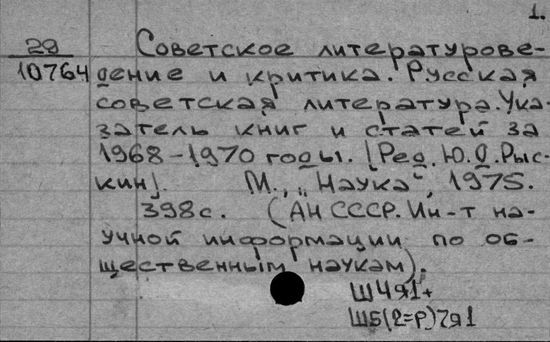 1.
29
10764
Советское литературове-
дение и критика. Русская
советская литература. Ука-
затель книг и статей за
1968-1970 годы. [Ред. Ю.О. Рыс-
кин]. М., „Наука", 1975.
398с. (АН СССР. Ин-т на-
учной информации по об-
щественным наукам).
Ш4я1+
Ш5(2=Р)7я1